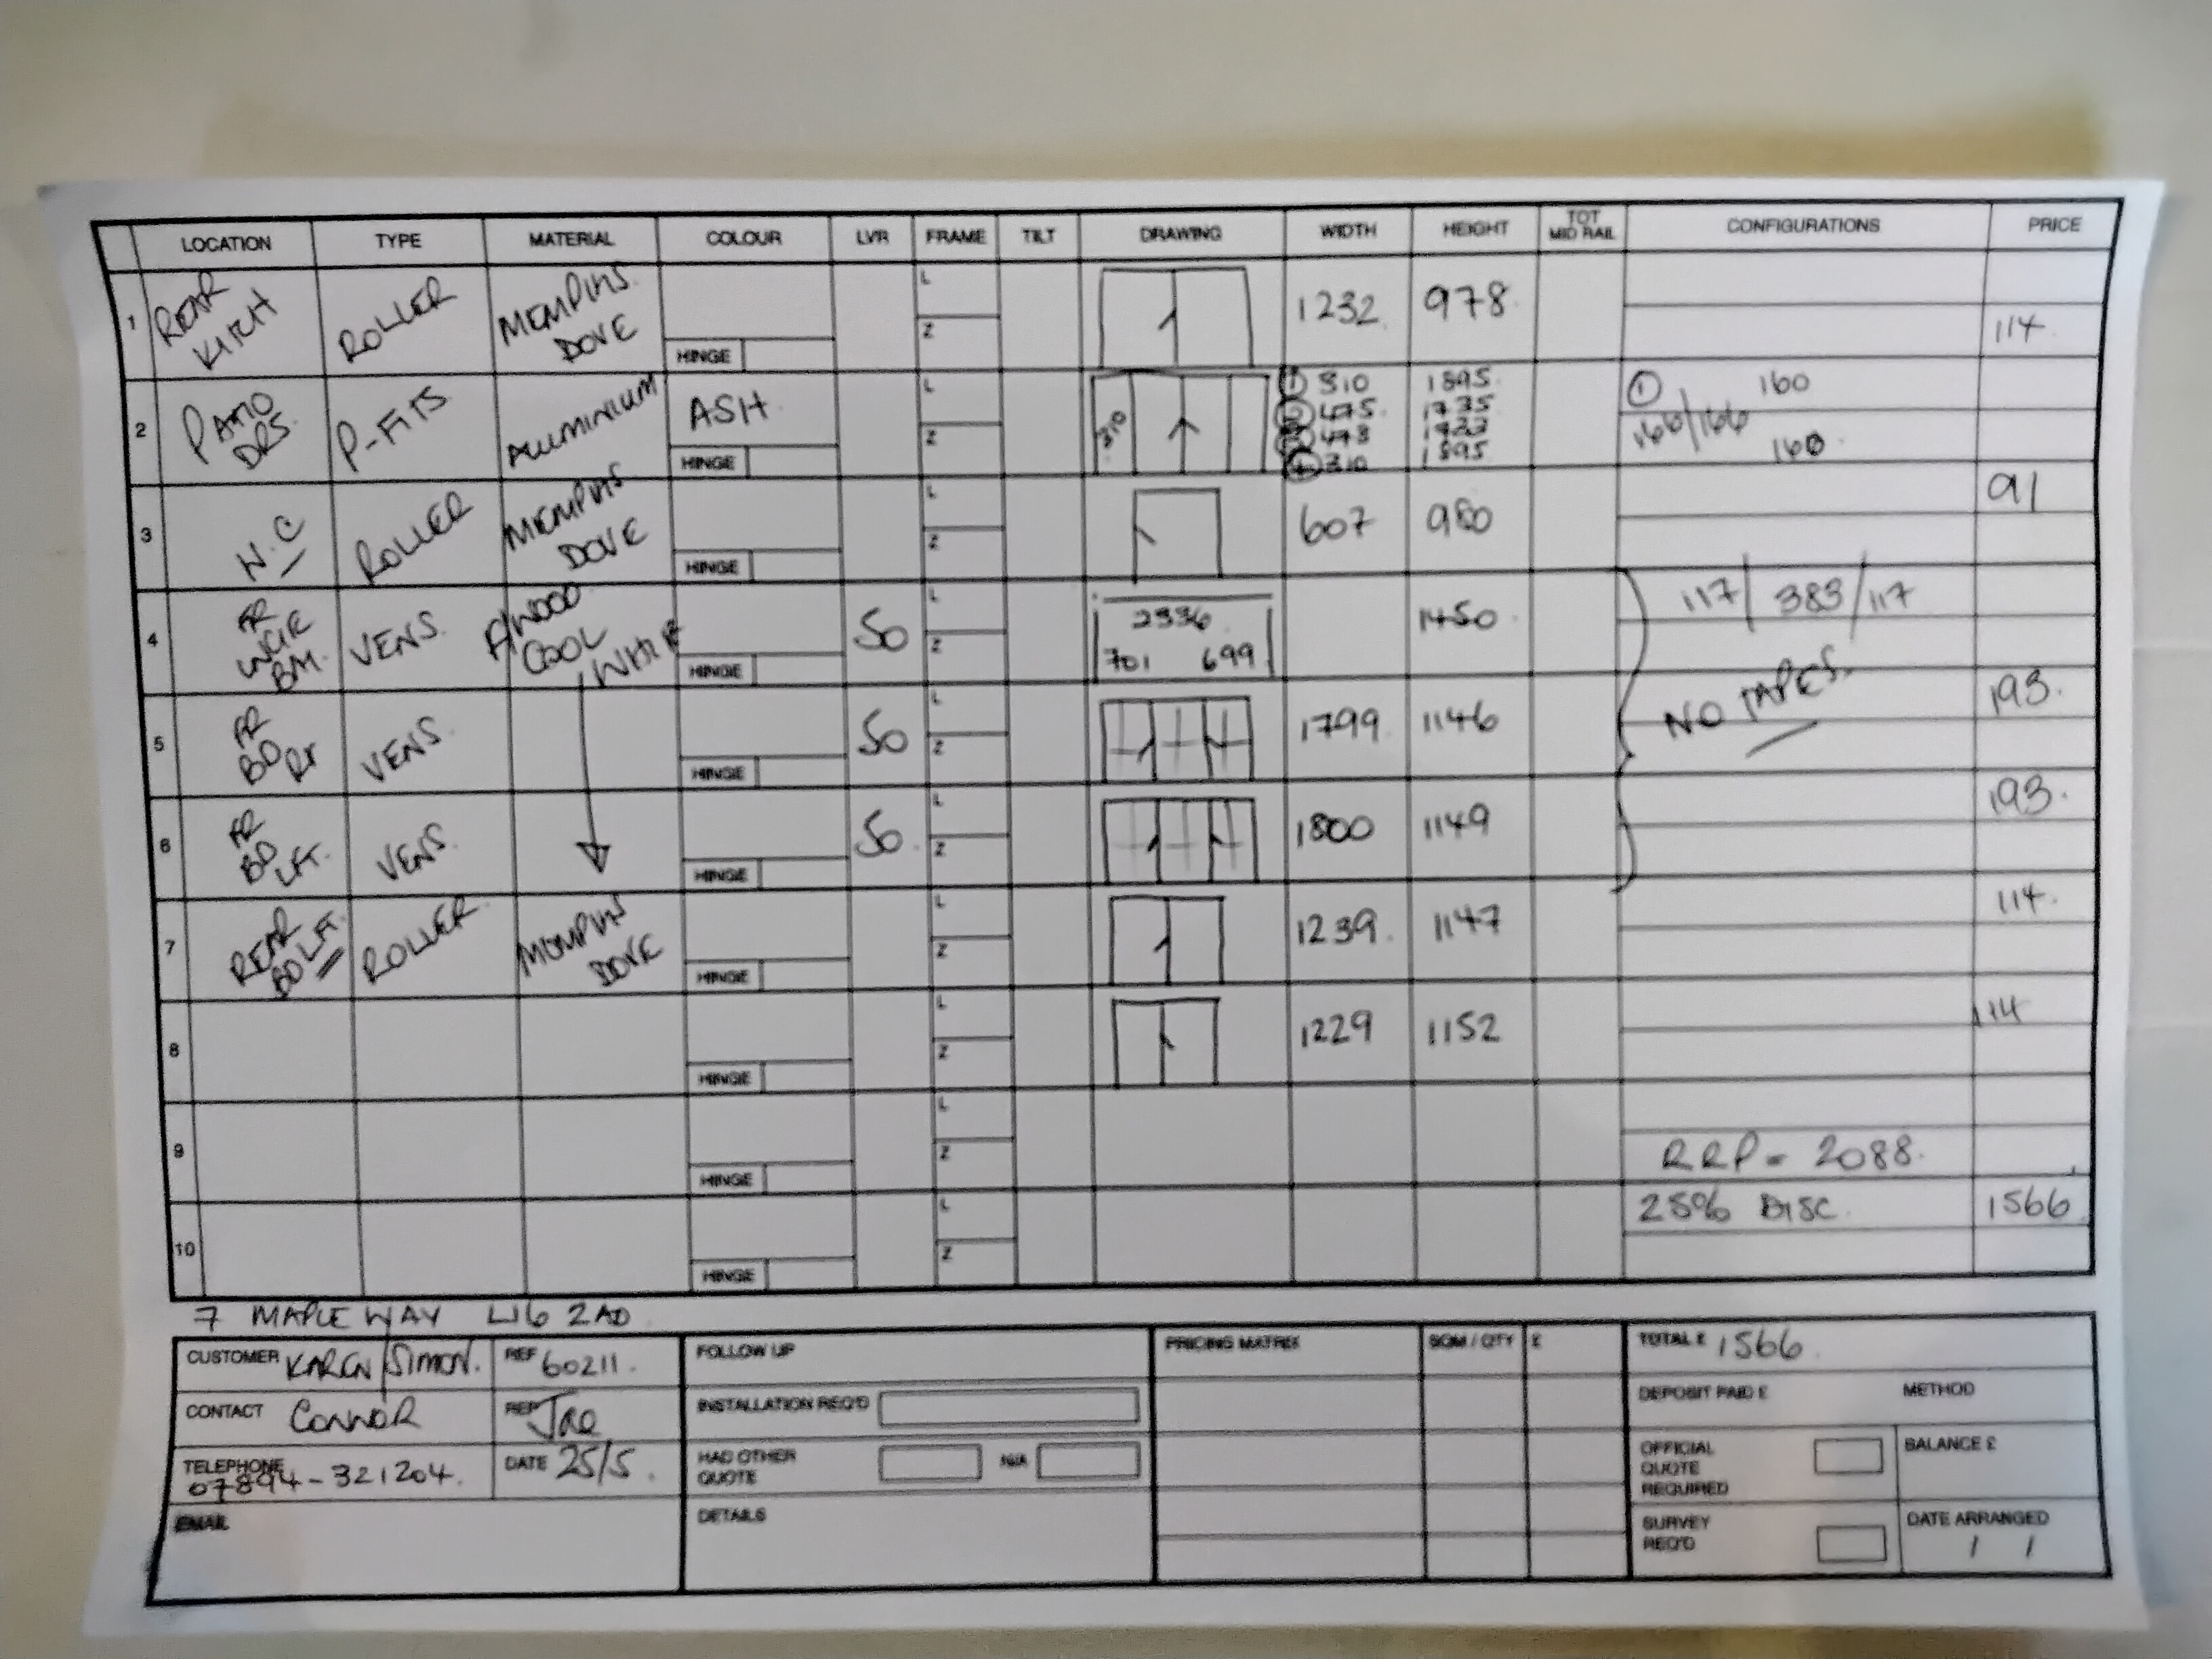 LOCATION TYPE MATERIAL COLOUR LVR FRAME TILT DRAWING WIDTH HEIGHT TOT MID RAIL CONFIGURATIONS PRICE
1 REAR KITCH ROLLER MEMPHIS DOVE HINGE L Z 1232 978 114
2 PATIO DRS. P-FITS ALUMINIUM ASH HINGE L Z 310
① 310 1895 ① 160
② 475 1735 166/166
478
④ 310 1895 160
3 W.C ROLLER MEMPHIS DOVE HINGE L Z 607 980 91
4 FR LNGE BM. VENS. F/WOOD COOL WHITE 50 HINGE L Z 2336 701 699 1450 117/383/117
NO TAPES.
5 FR BD RT VENS. 50 HINGE L Z 1799 1146 193.
6 FR BD LFT. VENS. 50 HINGE L Z 1800 1149 193.
7 REAR BD LFT. ROLLER MEMPHIS DOVE HINGE L Z 1239 1147 114.
8 HINGE L Z 1229 1152 114
9 HINGE L Z RRP = 2088.
10 HINGE L Z 25% DISC. 1566
7 MAPLE WAY L16 2AD
CUSTOMER KAREN/SIMON. REF 60211.
CONTACT CONNOR REP
TELEPHONE 07894-321204. DATE 25/5.
EMAIL
FOLLOW UP
INSTALLATION REQ'D
HAD OTHER QUOTE N/A
DETAILS
PRICING MATRIX SQM / QTY £
TOTAL £ 1566
DEPOSIT PAID £ METHOD
OFFICIAL QUOTE REQUIRED BALANCE £
SURVEY REQ'D DATE ARRANGED
/ /